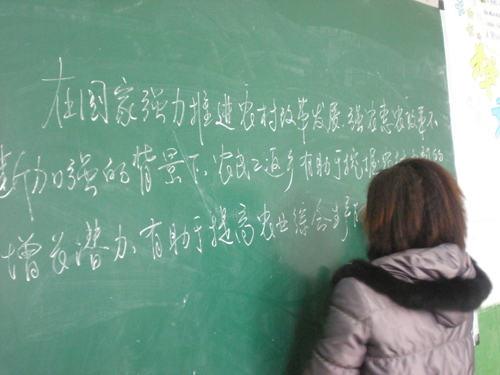 在国家强力推进农村改革发展、强农惠农政策不
断加强的背景下、农民工返乡有助于挖掘农村内部的
增长潜力、有助于提高农业综合生产